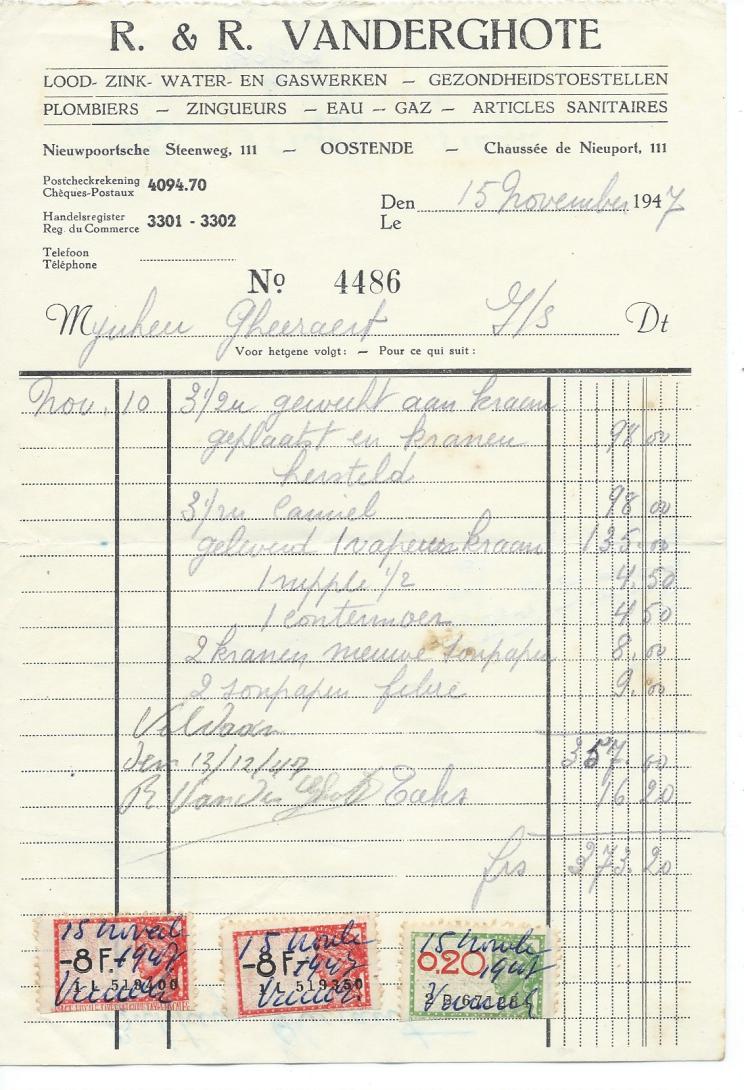 R. & R. VANDERGHOTE
LOOD- ZINK- WATER- EN GASWERKEN — GEZONDHEIDSTOESTELLEN
PLOMBIERS — ZINGUEURS — EAU — GAZ — ARTICLES SANITAIRES
Nieuwpoortsche Steenweg, 111 — OOSTENDE — Chaussée de Nieuport, 111
Postcheckrekening
Chèques-Postaux 4094.70
Handelsregister
Reg. du Commerce 3301 - 3302
Telefoon
Téléphone
Den 15 November 1947
Le
No 4486
Mynheer Gheeraert Dt
Voor hetgene volgt: — Pour ce qui suit:
Nov. 10 3 1/2u gewerkt aan kraan
geplaatst en kranen 98.00
hersteld
3 1/2u 98.00
geleverd 1 kraan 135.00
1 nipple 1/2 4.50
1 contermoer 4.50
2 kranen nieuwe 8.00
2 fibre 9.00
Voldaan
den 13/12/47 357.00
R Vanderghote Taks 16 20
frs 373.20
15 Novemb 15 Novemb 15 Novemb
-8 F.- 1947 -8 F.- 1947 0,20 1947